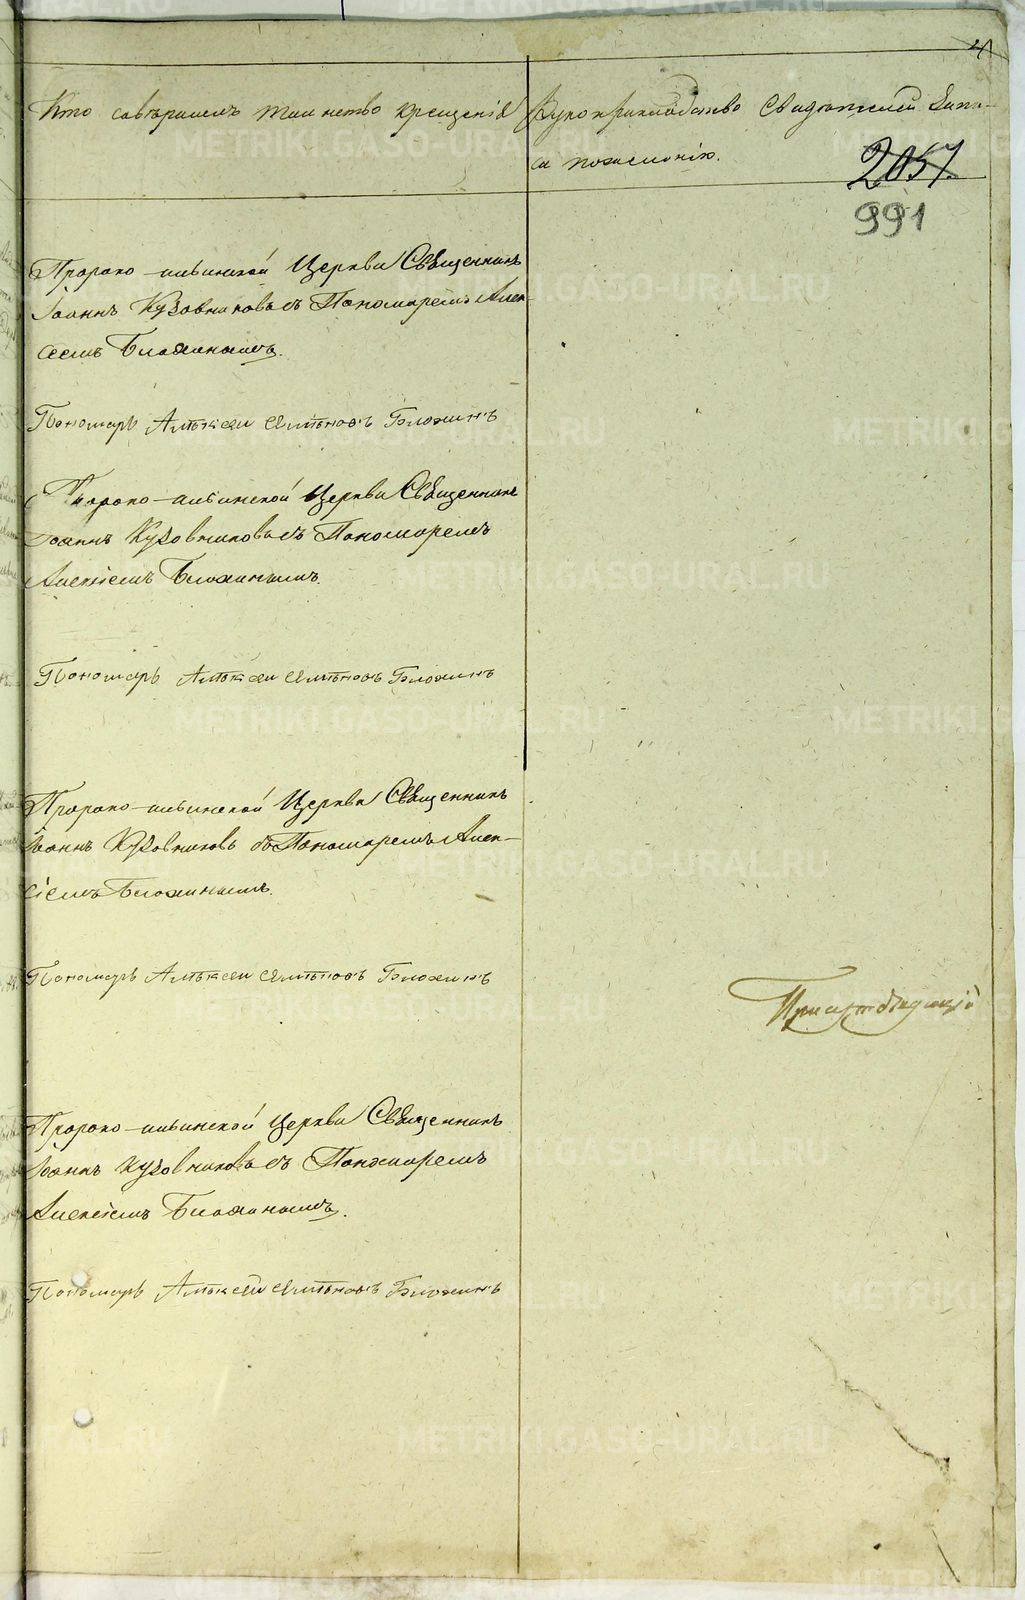 4
Кто совершалъ таинство крещенія
Рукоприкладство свидѣтелей запи-
си по желанію.
2057
991
Пророко-ильинской Церкви Священникъ
Іоаннъ Кузовниковъ съ Пономаремъ Алек-
сеемъ Блохинымъ.
Пономарь Алѣксеи Блохинъ
Пророко-ильинской Церкви Священникъ
Іоаннъ Кузовниковъ съ Пономаремъ
Алексіемъ Блохинымъ.
Пономарь Алѣксеи Блохинъ
Пророко-ильинской Церкви Священникъ
Іоаннъ Кузовниковъ съ Пономаремъ Алек-
сіемъ Блохинымъ.
Пономарь Алѣксеи Блохинъ
Пророко-ильинской Церкви Священникъ
Іоаннъ Кузовниковъ съ Пономаремъ
Алексіемъ Блохинымъ.
Пономарь Алѣксей Блохинъ
METRIKI.GASO-URAL.RU